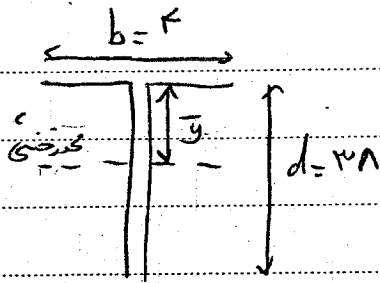 b = ۴
ȳ
محور خنثی
d = ۳۸